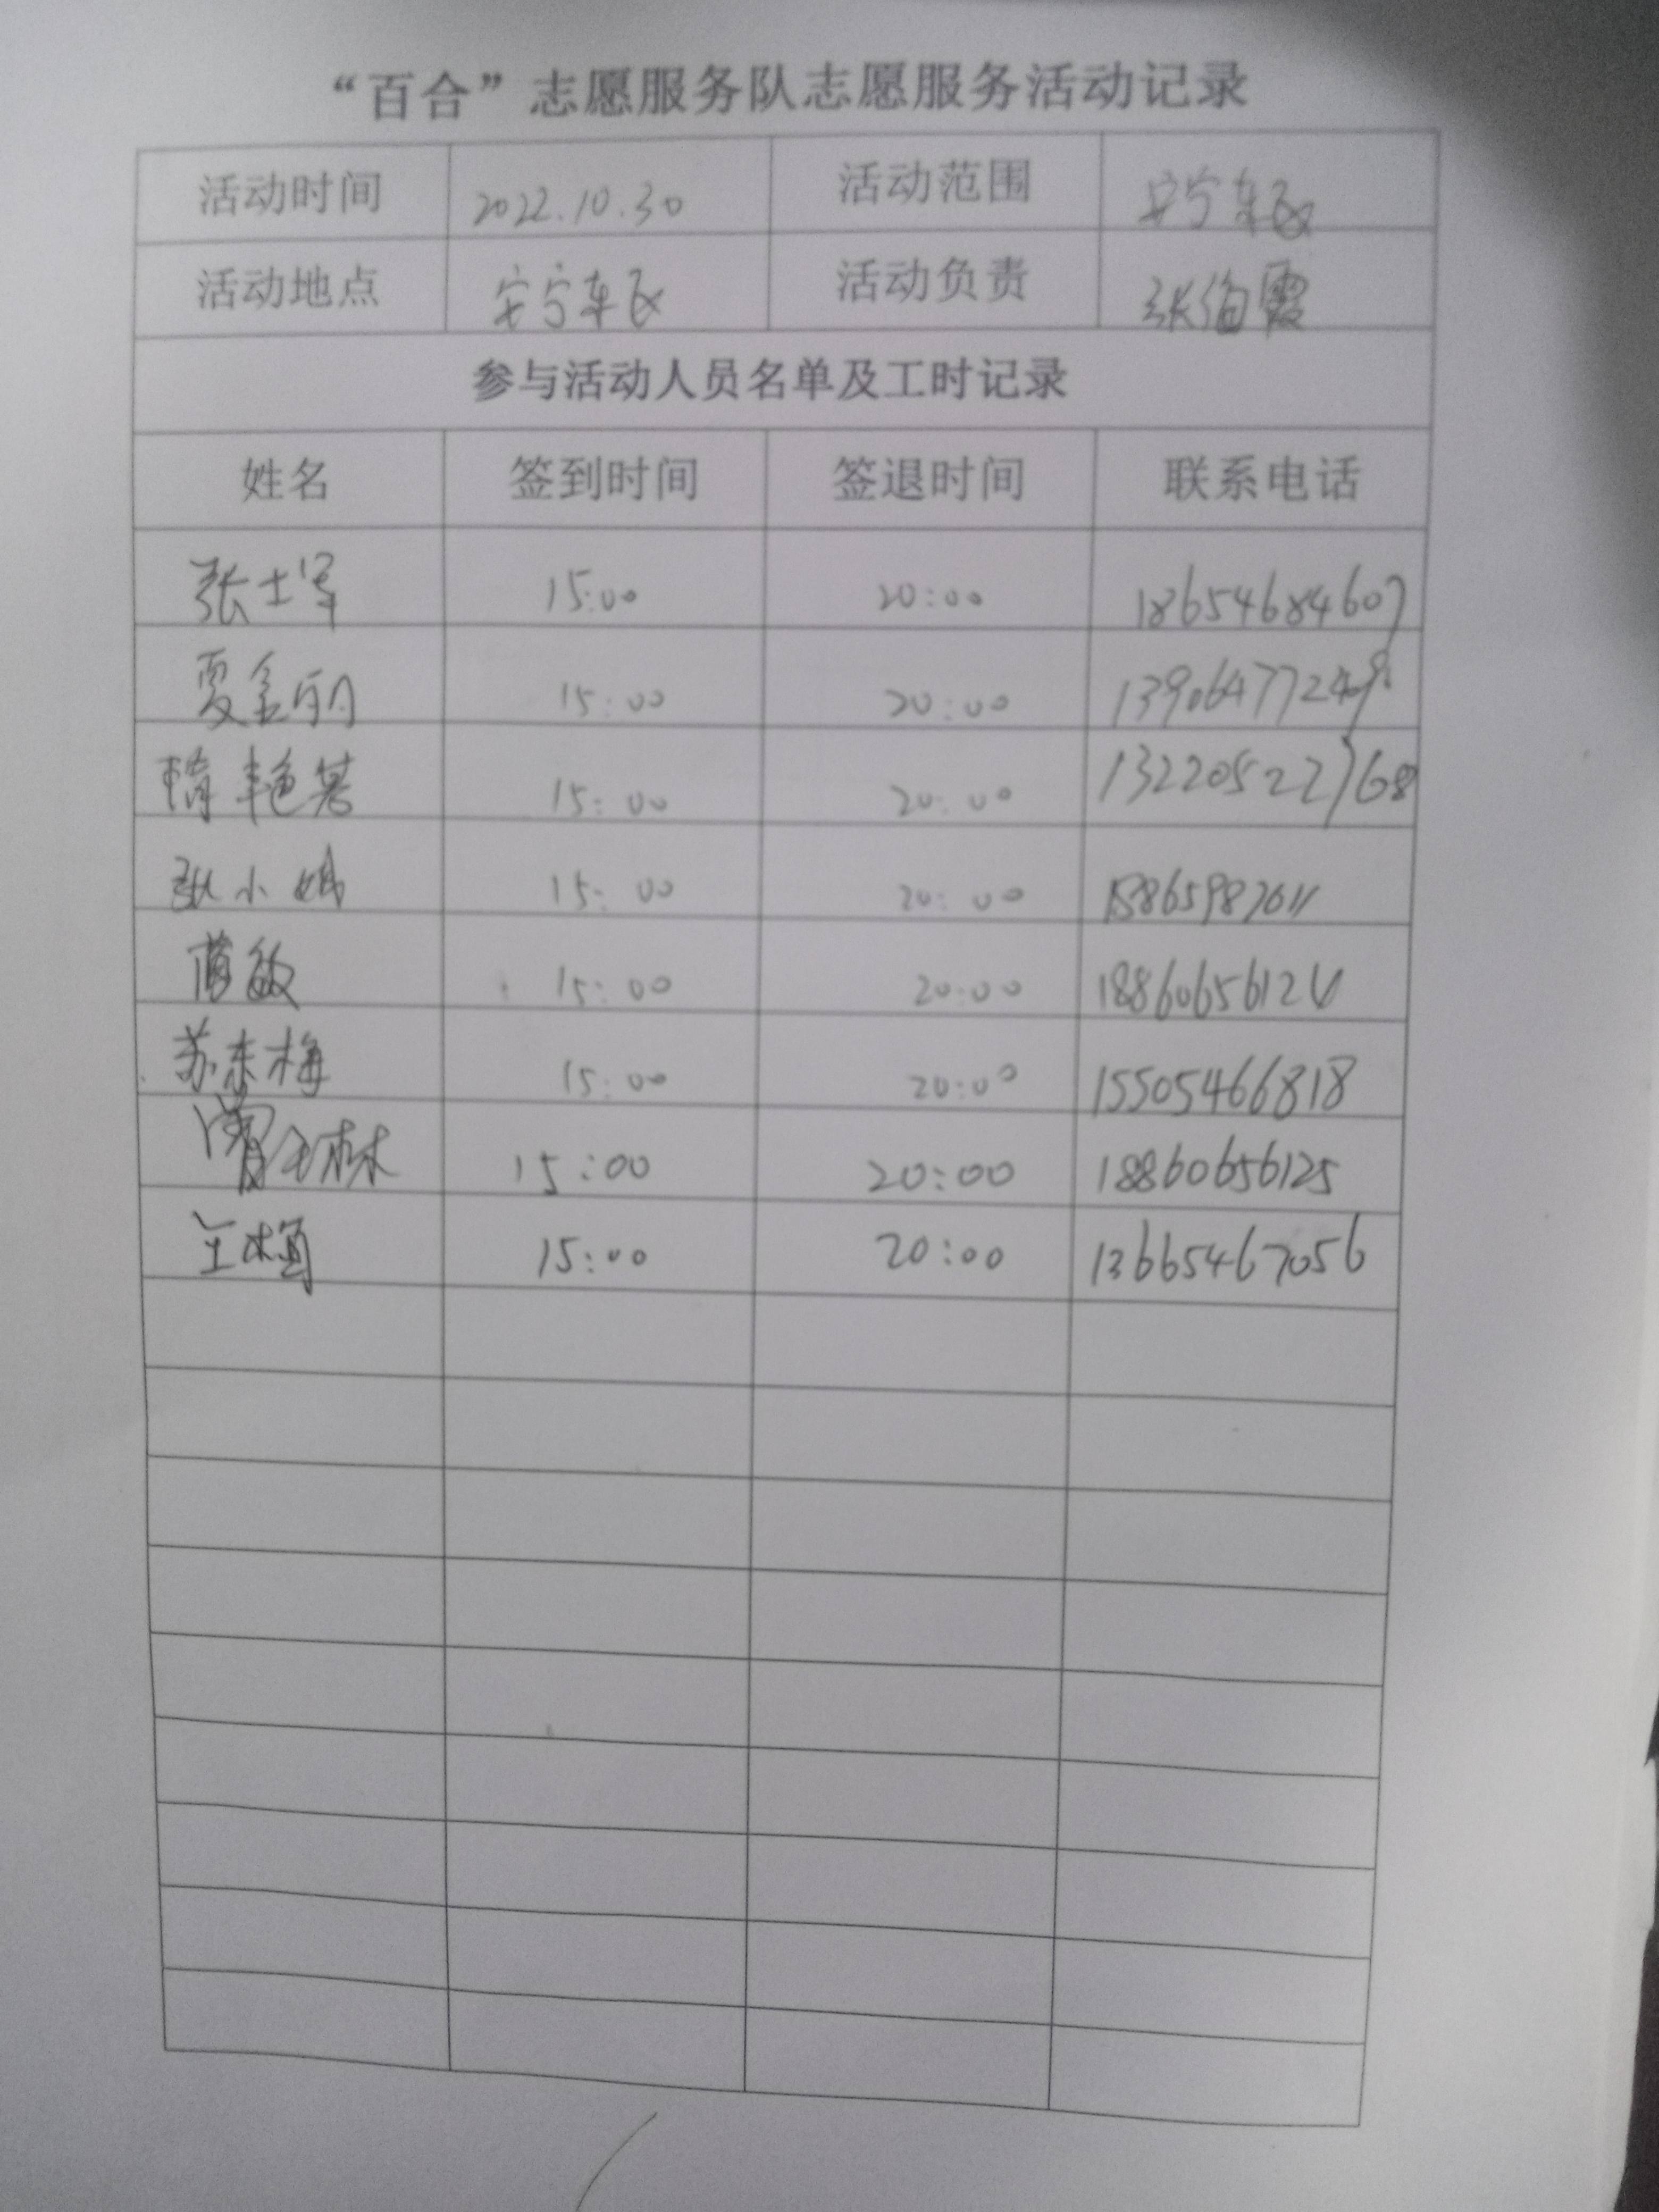 “百合”志愿服务队志愿服务活动记录
活动时间 2022.10.30 活动范围 安宁东区
活动地点 安宁东区 活动负责 张海霞
参与活动人员名单及工时记录
姓名 签到时间 签退时间 联系电话
张士军 15:00 20:00 18654684607
夏金丽 15:00 20:00
艳 15:00 20:00
张小娥 15:00 20:00
敏 15:00 20:00 18860656124
苏东梅 15:00 20:00 15505466818
15:00 20:00 18860656125
15:00 20:00 13665467056